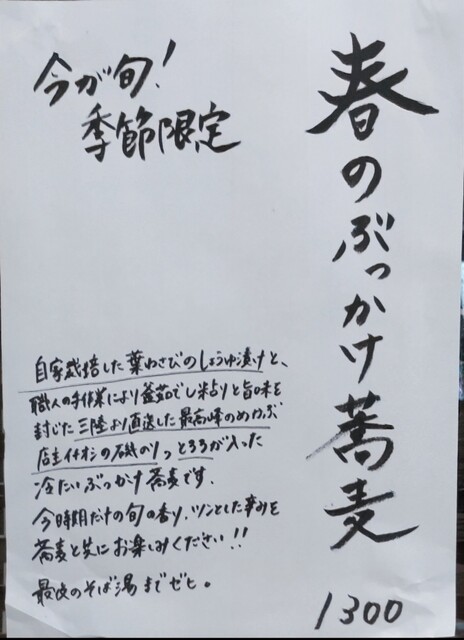 春のぶっかけ蕎麦
1300
今が旬!
季節限定
自家栽培した葉わさびのしょうゆ漬けと、
職人の手作業により釜茹でし粘りと旨味を
封じた三陸より直送した最高峰のめかぶ
店主イチオシの磯のり、とろろが入った
冷たいぶっかけ蕎麦です。
今時期だけの旬の香り、ツンとした辛みを
蕎麦と共にお楽しみください!!
最後のそば湯までゼヒ。